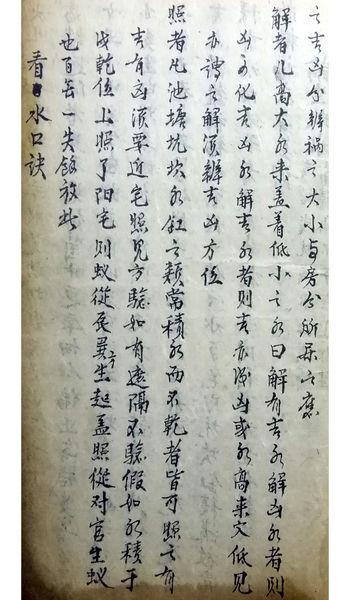 之吉凶分辨祸之大小与房分所属之应
解者凡高大水来盖着低小之水曰解有吉水解凶水者则
凶水化吉凶水解吉水者则吉亦凶或水高来穴低见
亦谓之解须辨吉凶方位
照者凡池塘坑坎水缸之類常積水而不乾者皆可照之有
吉有凶須要近宅照见方騐如有遠隔不騐假如水積于
戌乾位上照了阳宅则蚁從辰巽方生起盖照從对宫生蚁
也百無一失餘放此
看水口訣